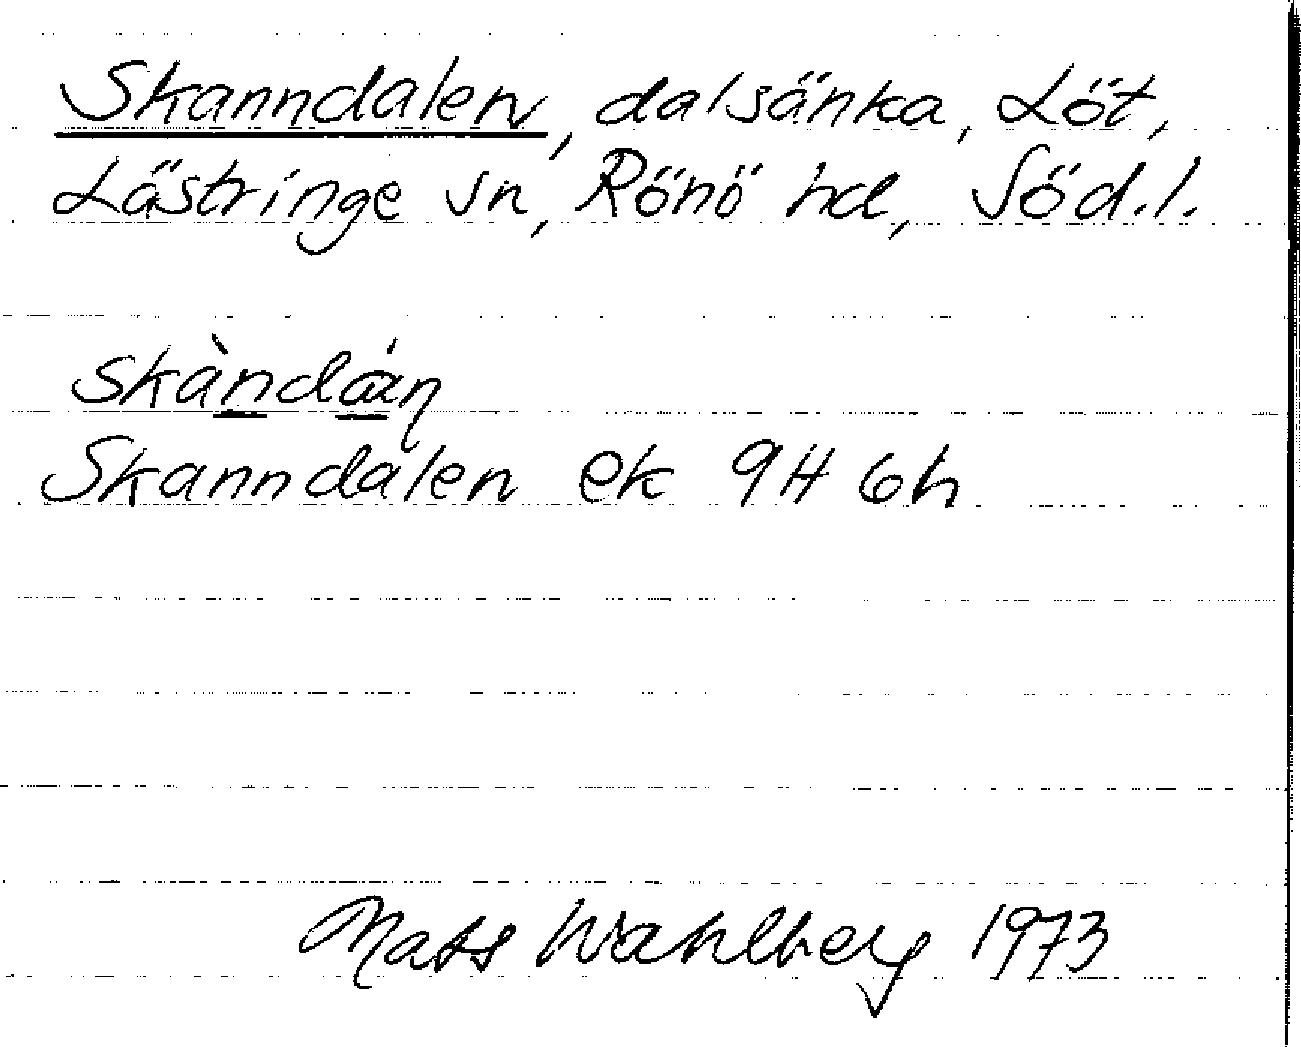 Skanndalen, dalsänka, Löt,
Lästringe sn, Rönö hd, Söd.l.
skàndáɑn
Skanndalen ek 9H 6h
Mats Wahlberg 1973